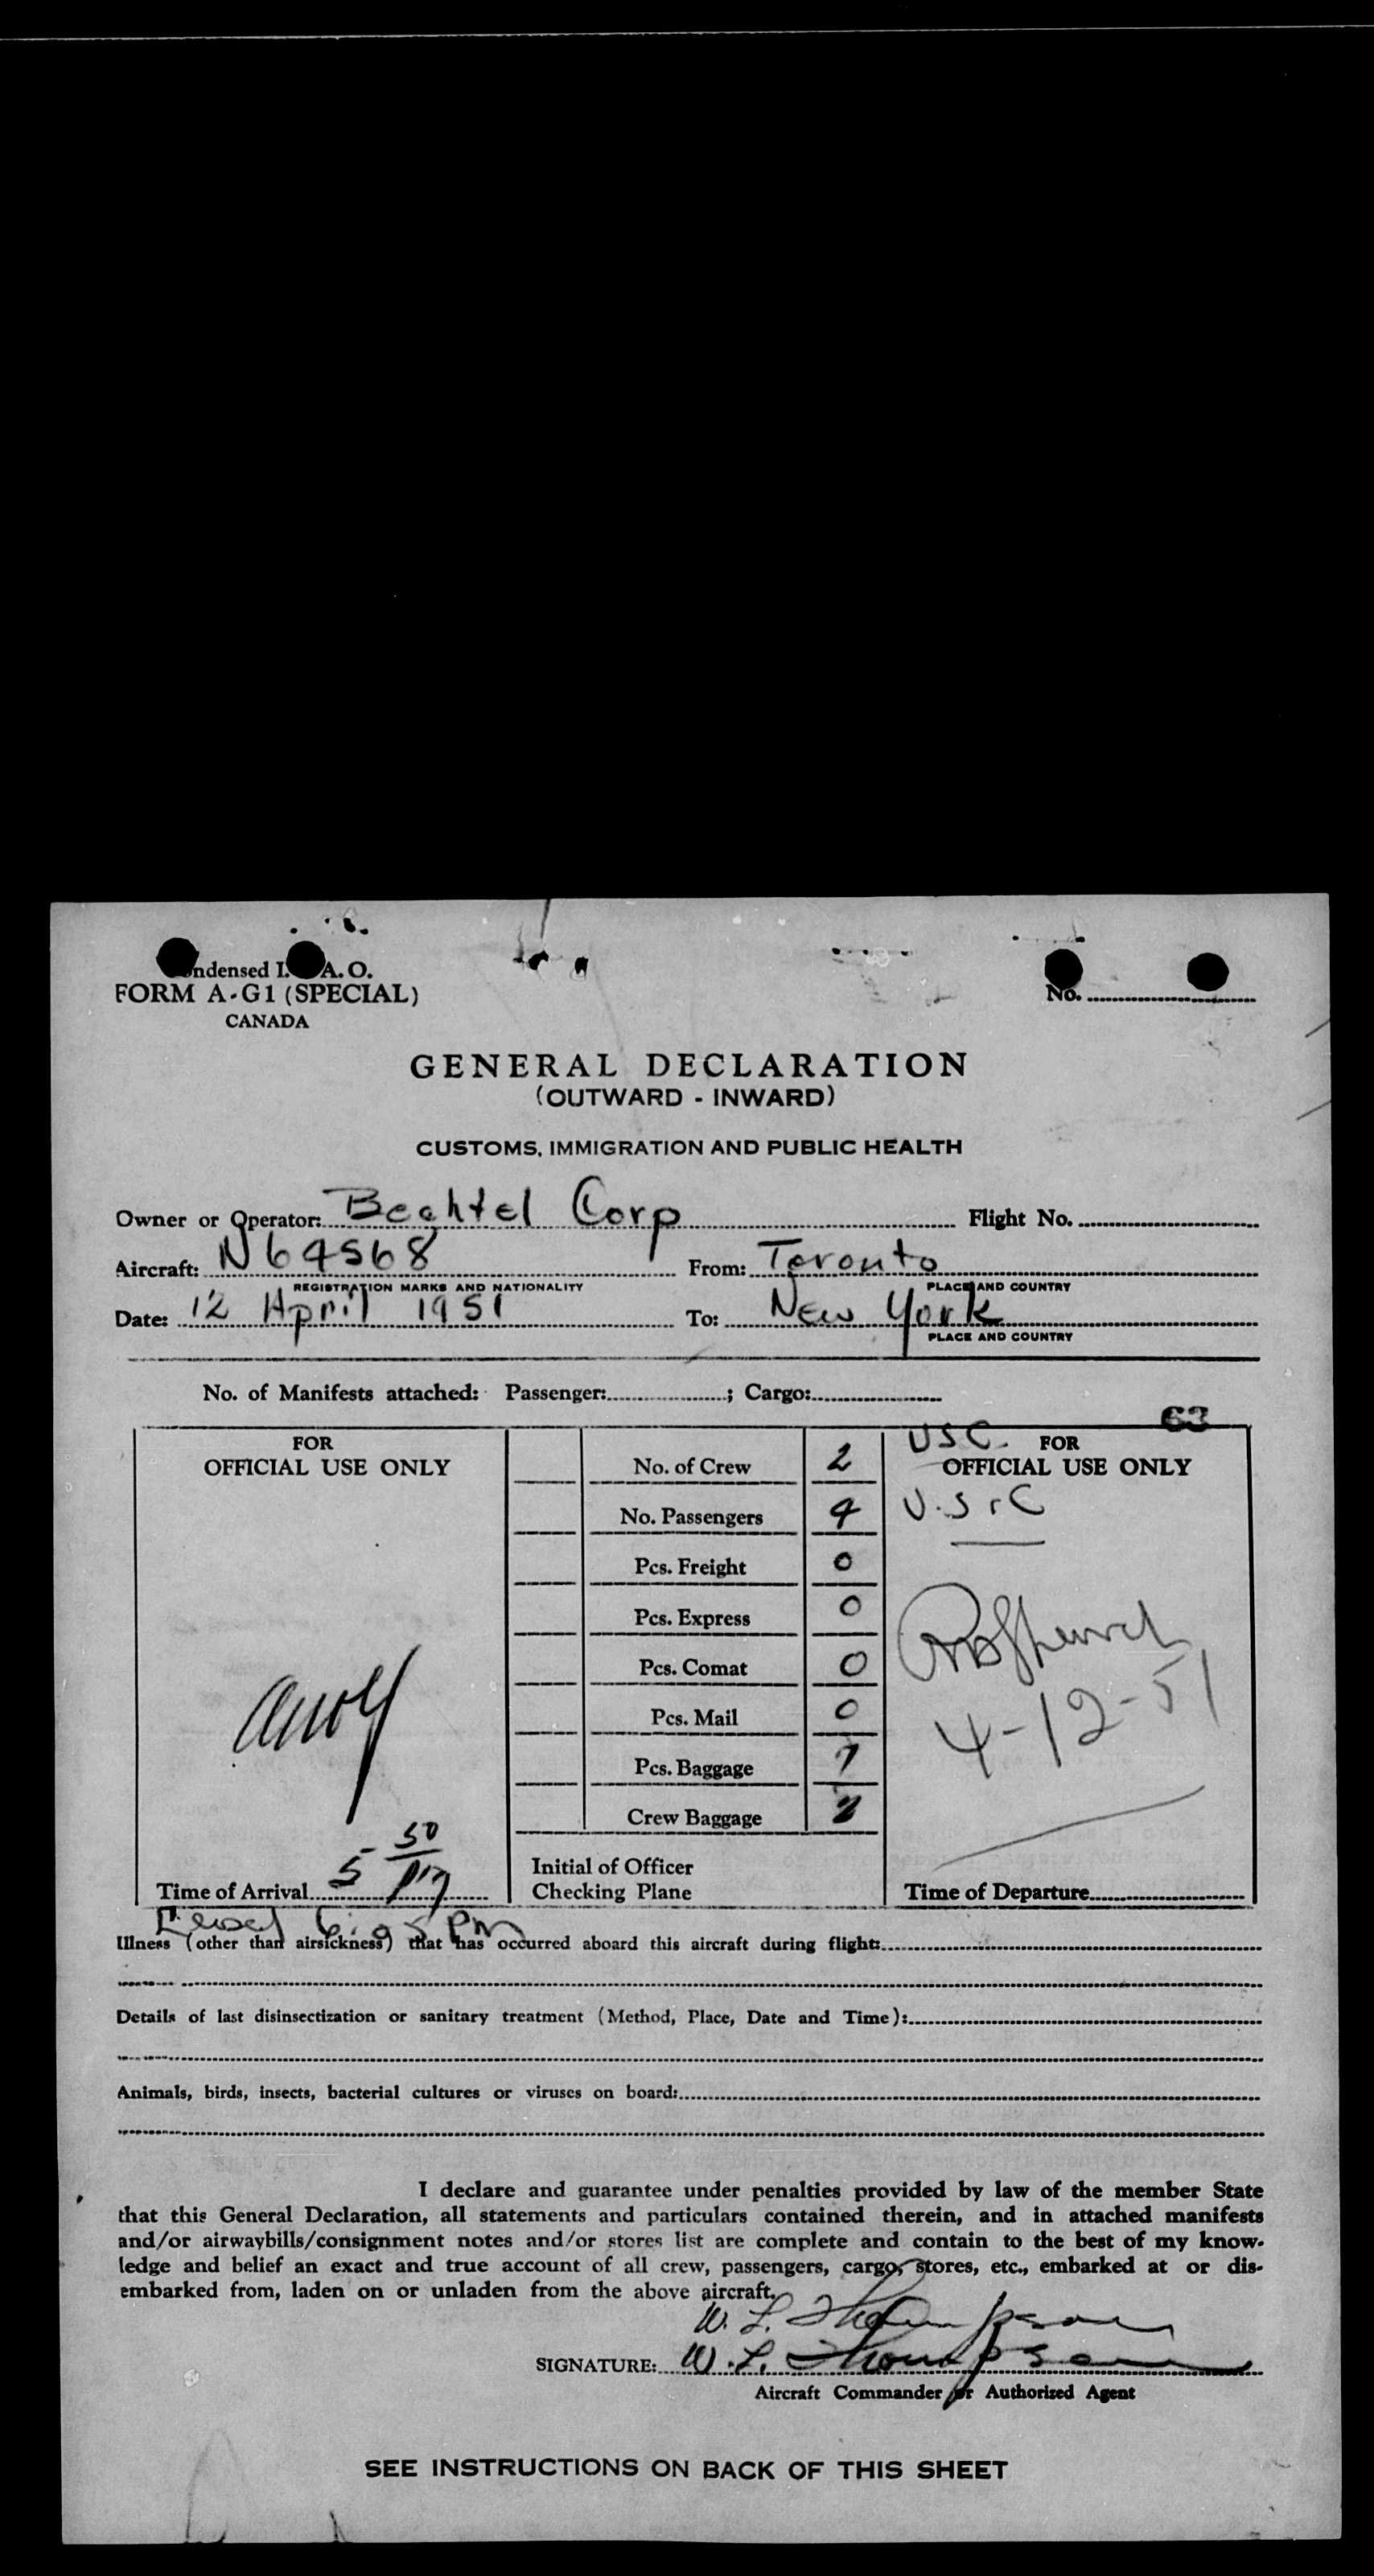 Condensed I.C.A.O.
FORM A-G1 (SPECIAL)
CANADA
No.
GENERAL DECLARATION
(OUTWARD - INWARD)
CUSTOMS, IMMIGRATION AND PUBLIC HEALTH
Owner or Operator: Bechtel Corp Flight No.
Aircraft: N64568 From: Toronto
REGISTRATION MARKS AND NATIONALITY PLACE AND COUNTRY
Date: 12 April 1951 To: New York
PLACE AND COUNTRY
No. of Manifests attached: Passenger: ; Cargo:
63
FOR USC. FOR
OFFICIAL USE ONLY No. of Crew 2 OFFICIAL USE ONLY
No. Passengers 4 U.S.C
Pcs. Freight 0
Pcs. Express 0
Pcs. Comat 0
Pcs. Mail 0 4-12-51
Pcs. Baggage 7
Crew Baggage 2
Initial of Officer
Time of Arrival 5 50 PM Checking Plane Time of Departure
6:05 PM
Illness (other than airsickness) that has occurred aboard this aircraft during flight:
Details of last disinsectization or sanitary treatment (Method, Place, Date and Time):
Animals, birds, insects, bacterial cultures or viruses on board:
I declare and guarantee under penalties provided by law of the member State
that this General Declaration, all statements and particulars contained therein, and in attached manifests
and/or airwaybills/consignment notes and/or stores list are complete and contain to the best of my know-
ledge and belief an exact and true account of all crew, passengers, cargo, stores, etc., embarked at or dis-
embarked from, laden on or unladen from the above aircraft.
W. L. Thompson
SIGNATURE: W. L. Thompson
Aircraft Commander or Authorized Agent
SEE INSTRUCTIONS ON BACK OF THIS SHEET